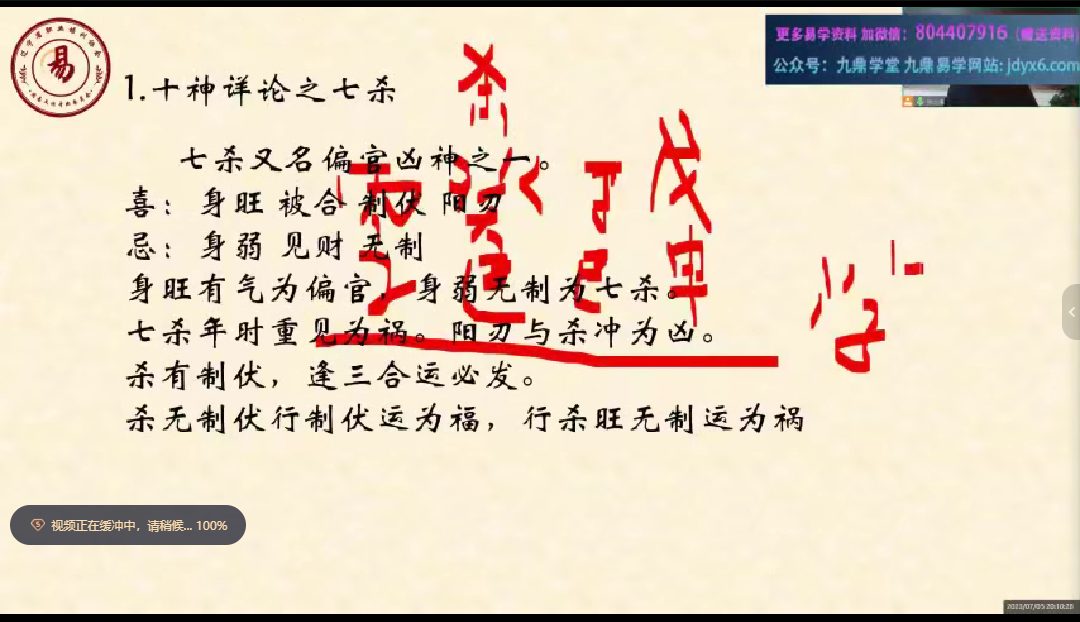 更多易学资料 加微信：804407916（赠送资料）
公众号：九鼎学堂 九鼎易学网站: jdyx6.com
易
1.十神详论之七杀
杀
七杀又名偏官凶神之一。
戊
喜：身旺 被合 制伏 阳刃
忌：身弱 见财 无制
申
身旺有气为偏官，身弱无制为七杀。
七杀年时重见为祸。阳刃与杀冲为凶。
杀有制伏，逢三合运必发。
杀无制伏行制伏运为福，行杀旺无制运为祸
视频正在缓冲中，请稍候... 100%